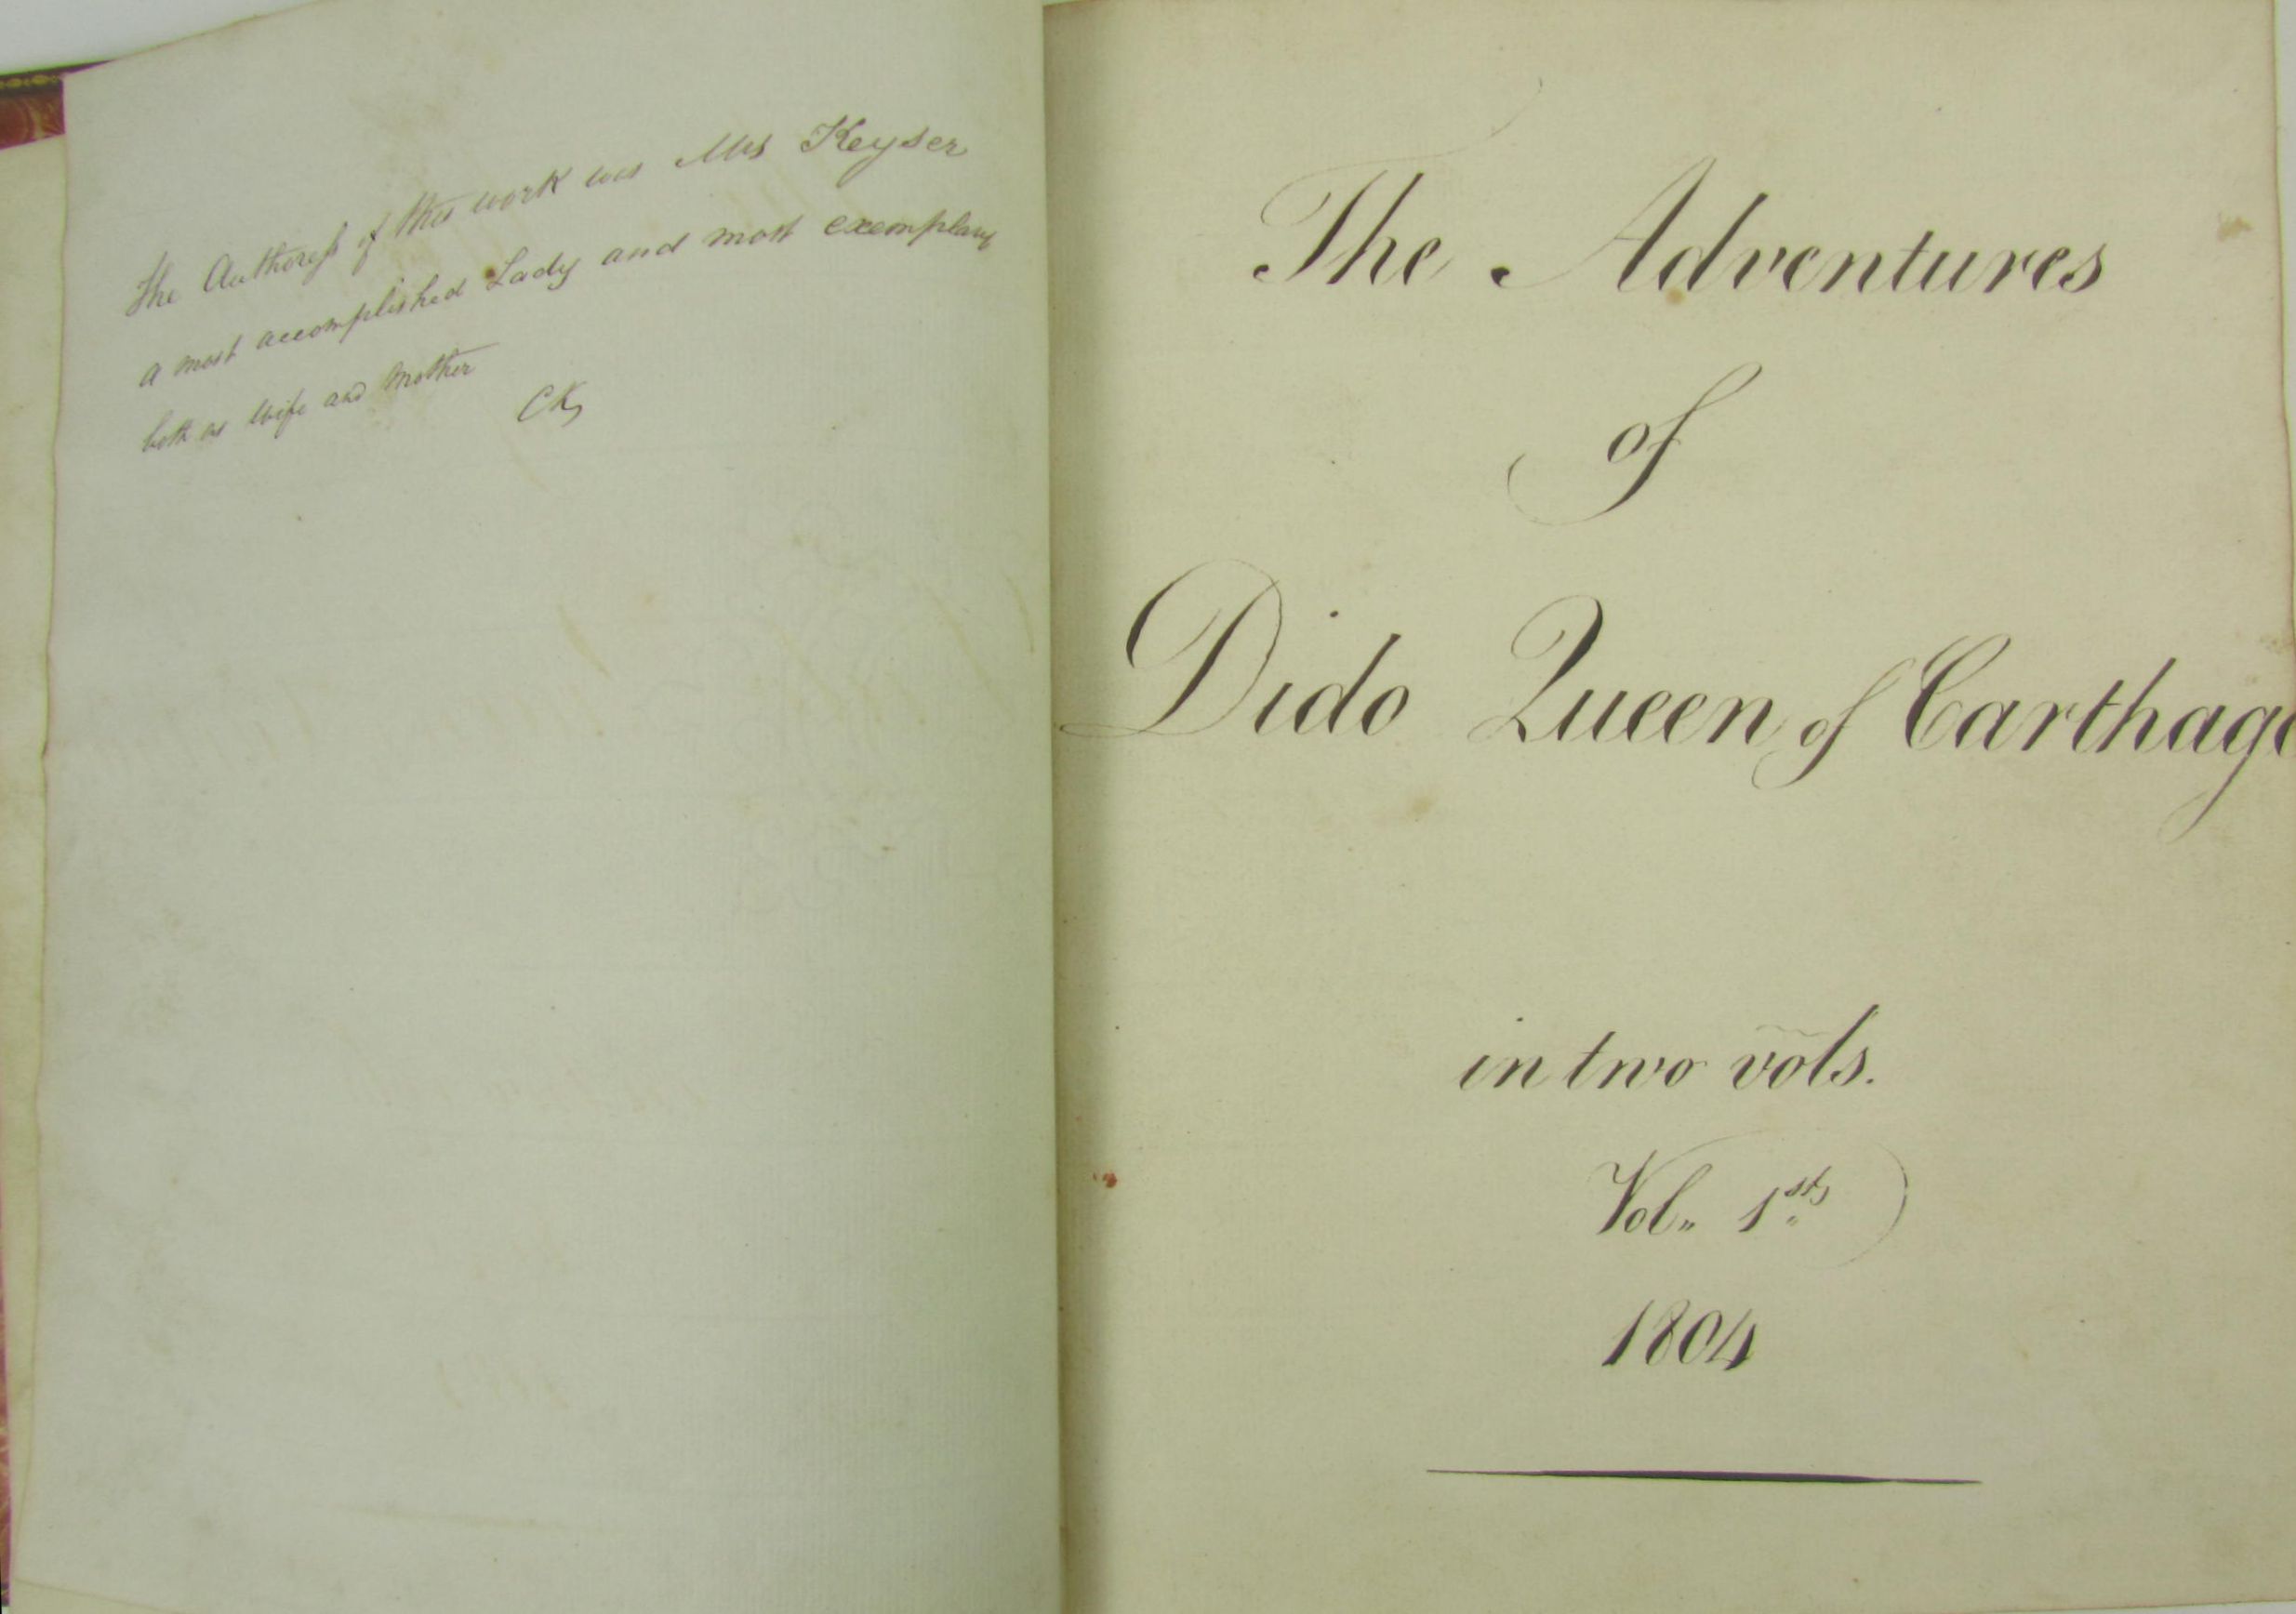 The Authoress of this work was Mrs Keyser
a most accomplished Lady and most exemplary
both as Wife and Mother
CK
The Adventures
of
Dido Queen of Carthage
in two vols.
Vol. 1st
1804